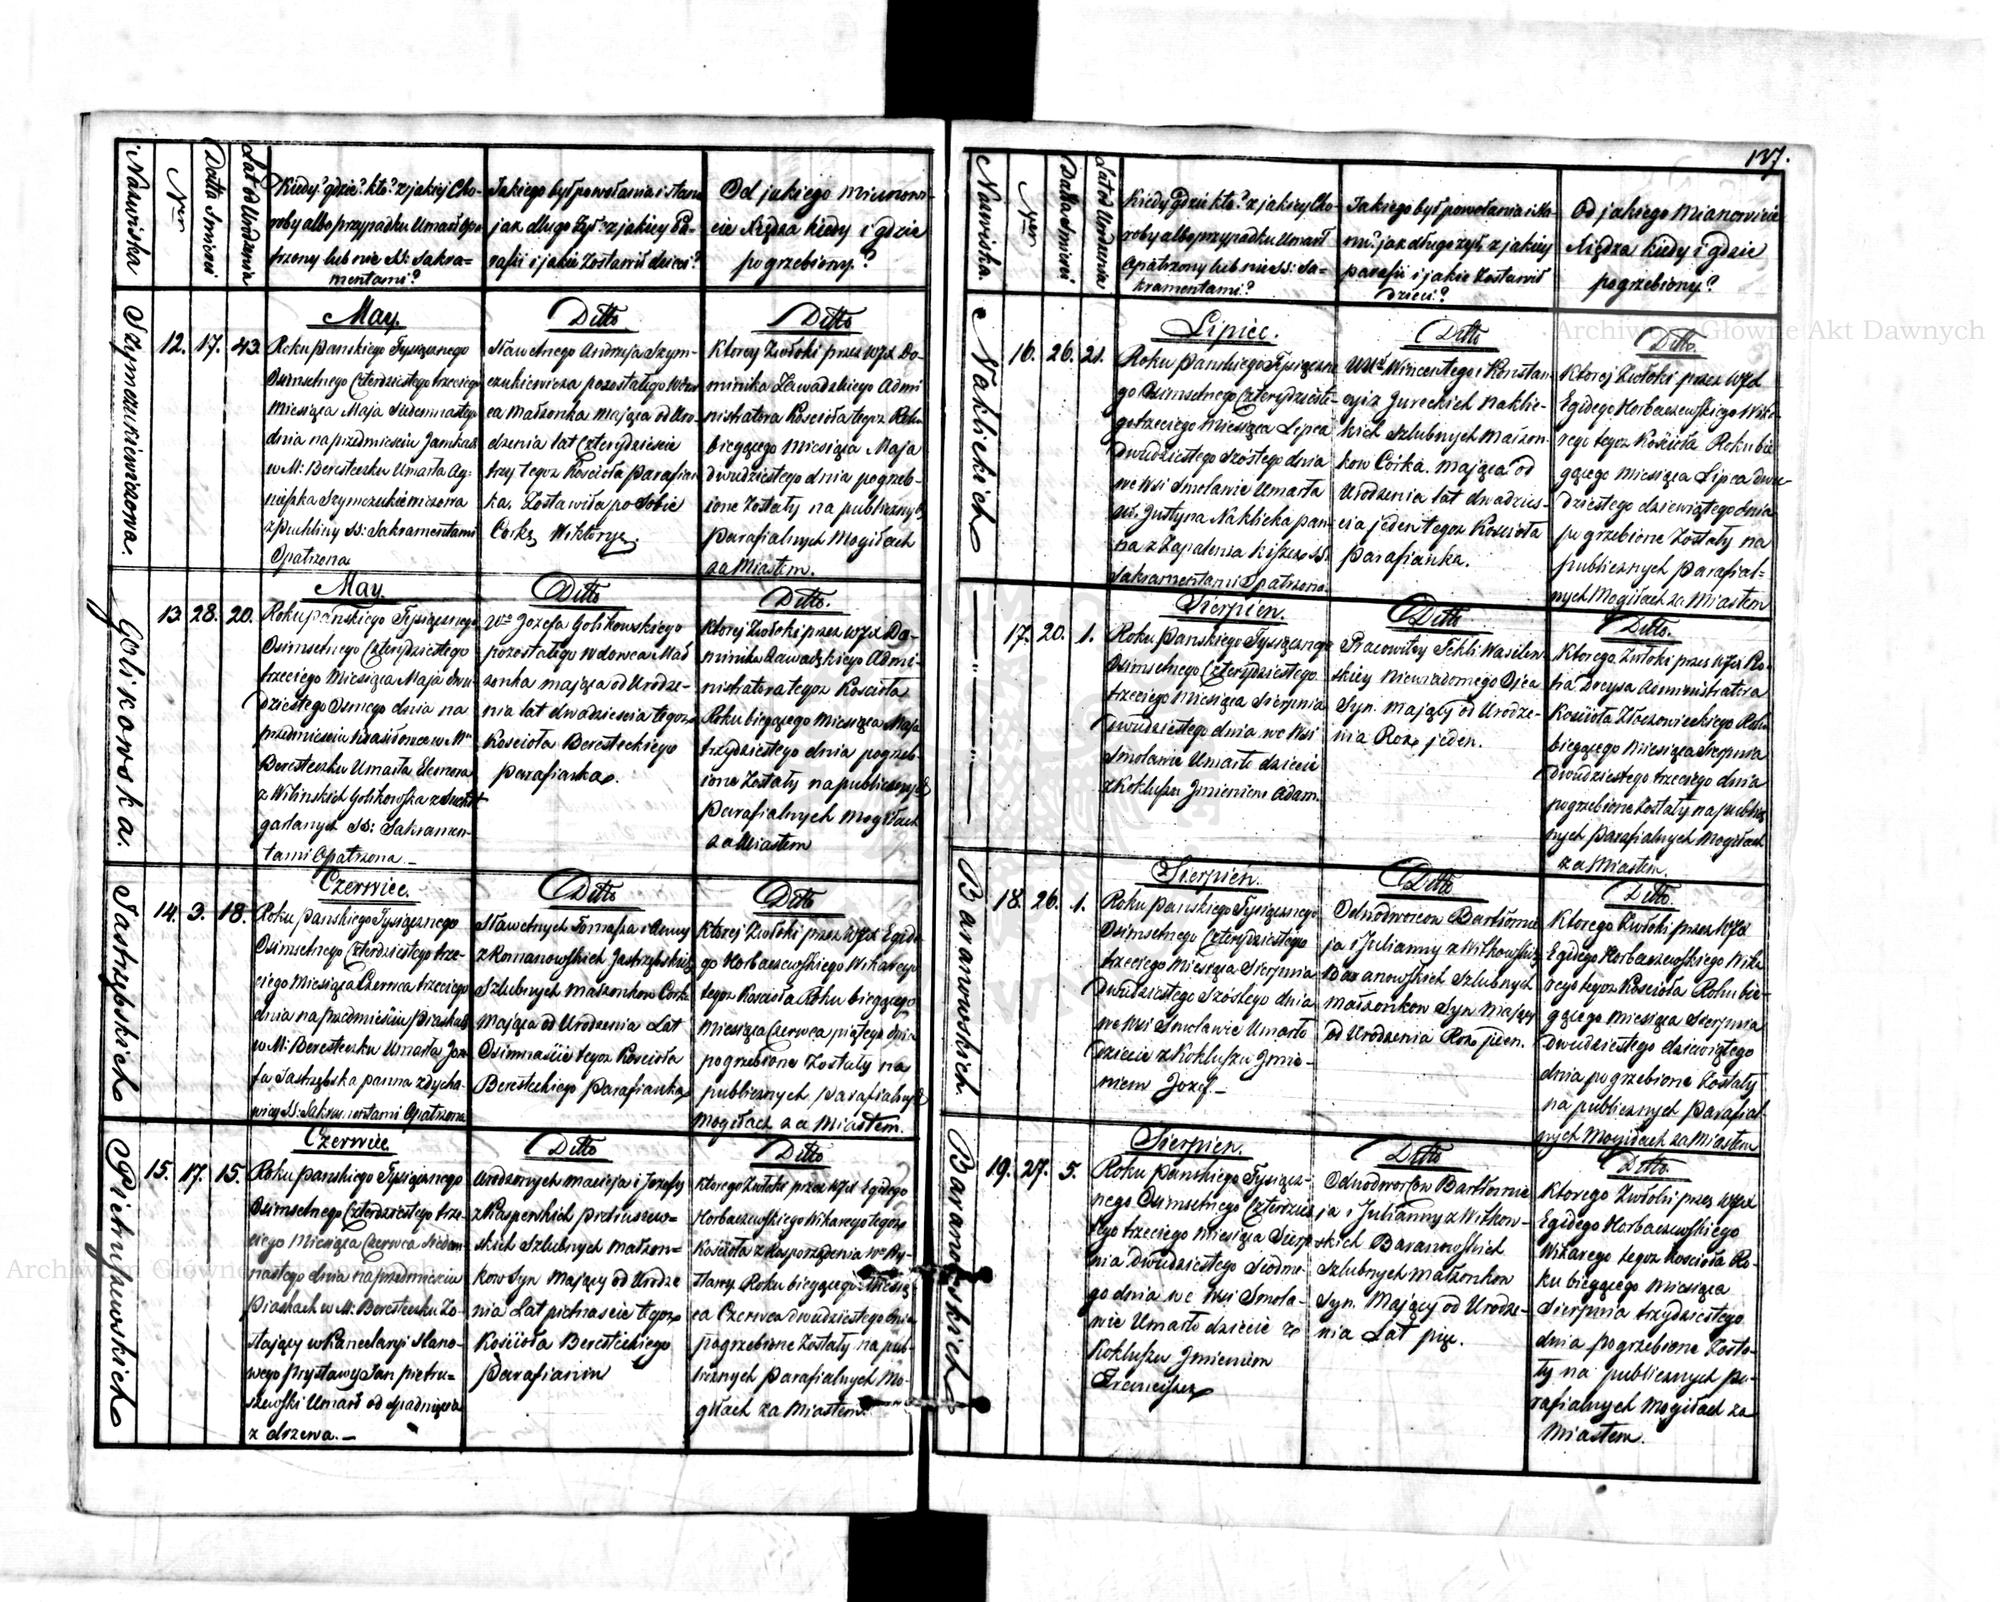 137.
Nazwiska
Nrm
Datta Śmierci
Lat od Urodzenia
Kiedy? gdzie? kto? z jakiej Cho-
roby albo przypadku Umarł Opa-
trzony lub nie SS: Sakra=
mentami?
Jakiego był powołania i stanu
jak długo żył? z jakiey Pa-
rafii i jakie Zostawił dzieci?
Od jakiego mianowi-
cie Xiędza kiedy i gdzie
pogrzebiony?
Szymczukiewiczowa.
12. 17. 43.
May.
Roku Pańskiego Tysiącznego
Osimsetnego Czterdziestego trzeciego
Miesiąca Maja Siedemnastego
dnia na przedmieściu
w M: Beresteczku Umarła Ag-
nieszka Szymczukiewiczowa
z puchliny SS: Sakramentami
Opatrzona
Ditto
Sławetnego Andrzeja Szym-
czukiewicza pozostałego Wdow
ca Małżonka mająca od Uro-
dzenia lat Czterydzieście
trzy tegoż Kościoła Parafian
ka. Zostawiła po Sobie
Corkę Wiktoryę.
Ditto
Ktorey Zwłoki przez WJX Do-
minika Zawadzkiego Admi
nistratora Kościoła tegoż Roku
bieżącego Miesiąca Maja
dwudziestego dnia pogrzeb-
ione Zostały na publicznych
Parafialnych Mogiłach
za Miastem.
Golikowska.
13. 28. 20.
May.
Roku Pańskiego Tysiącznego
Osimsetnego Czterydziestego
trzeciego Miesiąca Maja dwu
dziestego Osmego dnia na
przedmieściu w Mku
Beresteczku Umarła Eleonora
z Wilinskich Golikowska z Suchot
garlanych SS: Sakramen-
tami Opatrzona_
Ditto
Wgo Jozefa Golikowskiego
pozostałego wdowca Mał
żonka mająca od Urodze-
nia lat dwadzieścia tegoż
Kościoła Beresteckiego
parafianka.
Ditto.
Ktorej Zwłoki przez WJX Do-
minika Zawadzkiego Admi-
nistratora tegoż Kościoła
Roku bieżącego Miesiąca Maja
trzydziestego dnia pogrzeb-
ione Zostały na publicznych
Parafialnych Mogiłach
za Miastem
Jastrzębskich
14. 3. 18.
Czerwiec.
Roku Pańskiego Tysiącznego
Osimsetnego Czterdziestego trze-
ciego Miesiąca Czerwca trzeciego
dnia na przedmieściu Piaskach
w M: Beresteczku Umarła Joze
fa Jastrzębska panna z dycha-
wicy SS: Sakramentami Opatrzona
Ditto
Sławetnych Tomasza i Anny
z Romanowskich Jastrzębskich
Szlubnych Małżonkow Corka
Mająca od Urodzenia Lat
Osimnaście tegoż Kościoła
Beresteckiego Parafianka
Ditto
Ktorej Zwłoki przez WJX Egide
go Horbaczewskiego Wikarego
tegoż Kościoła Roku bieżącego
Miesiąca Czerwca piątego dnia
pogrzebione Zostały na
publicznych parafialnych
Mogiłach za Miastem.
Pietruszewskich
15. 17. 15.
Czerwiec.
Roku Pańskiego Tysiącznego
Osimsetnego Czterdziestego trze-
ciego Miesiąca Czerwca Siedm
nastego dnia na przedmieściu
Piaskach w M: Beresteczku Zo-
stający w Kancelaryi Stano-
wego Prystawy Jan Pietru=
szewski Umarł od spadnięcia
z drzewa._
Ditto
Urodzonych Macieja i Jozefy
z Kasperskich Pietruszew=
skich Szlubnych Małżon=
kow Syn Mający od Urodze
nia Lat pietnaście tegoż
Kościoła Beresteckiego
Parafianin
Ditto
Ktorego Zwłoki przez WJX Egidego
Horbaczewskiego Wikarego tegoż
Kościoła z Rosporządzenia Wo Pry-
stawy Roku bieżącego Miesią
ca Czerwca dwudziestego dnia
pogrzebione Zostały na pub-
licznych Parafialnych Mo-
giłach za Miastem.
Nazwiska.
Nrm
Datta Śmierci
Lat od Urodzenia
Kiedy gdzie kto? z jakiey Cho-
roby albo przypadku Umarł
Opatrzony lub nie SS: Sa=
kramentami?
Jakiego był powołania i Sta
nu? jak długo żył z jakiey
parafii i jakie Zostawił
Dzieci?
Od jakiego Mianowicie
Xiędza kiedy i gdzie
pogrzebiony?
Naklickich
16. 26. 21.
Lipiec.
Roku Pańskiego Tysiączne
go Osimsetnego Czterydzieste-
go trzeciego Miesiąca Lipca
Dwudziestego Szostego dnia
we Wsi Smolawie Umarła
Justyna Naklicka pan-
na z Zapalenia Kiszek SS.
Sakramentami Opatrzona
Ditto
Wincentego i Konstan-
cyi z Jureckich Naklic-
kich Szlubnych Małżon-
kow Corka. Mająca od
Urodzenia lat dwadzieś-
cia jeden tegoż Kościoła
Parafianka.
Ditto.
Ktorej Zwłoki przez WJX
Egidego Horbaczewskiego Wika-
rego tegoż Kościoła Roku bie
żącego Miesiąca Lipca dwu-
dziestego dziewiątego dnia
pogrzebione Zostały na
publicznych parafial=
nych Mogiłach za Miastem
17. 20. 1.
Sierpień.
Roku Pańskiego Tysiącznego
Osimsetnego Czterydziestego
trzeciego Miesiąca Sierpnia
dwudziestego dnia we Wsi
Smolawie Umarło dziecie
z Kokluszu Jmieniem Adam.
Ditto
Pracowitey Tekli Wasilew
skiey niewiadomego Ojca
Syn. Mający od Urodze-
nia Rok jeden.
Ditto.
Ktorego Zwłoki przez WJX Pio-
tra Administratora
Kościoła Roku
bieżącego Miesiąca Sierpnia
Dwudziestego trzeciego dnia
pogrzebione Zostały na public
znych Parafialnych Mogiłach
za Miastem.
Baranowskich
18. 26. 1.
Sierpień.
Roku Pańskiego Tysiącznego
Osimsetnego Czterydziestego
trzeciego Miesiąca Sierpnia
Dwudziestego Szostego dnia
we Wsi Smolawie Umarło
Dziecie z Kokluszu Jmie-
niem Jozef._
Ditto
Odnodworcow Bartłomie
ja i Julianny z Witkowskich
Baranowskich Szlubnych
Małżonkow Syn Mający
od Urodzenia Rok jeden.
Ditto.
Ktorego Zwłoki przez WJX
Egidego Horbaczewskiego Wika
rego tegoż Kościoła Roku bie-
żącego Miesiąca Sierpnia
Dwudziestego dziewiątego
dnia pogrzebione Zostały
na publicznych Parafial-
nych Mogiłach za Miastem
Baranowskich
19. 27. 5.
Sierpień.
Roku Pańskiego Tysiącz-
nego Osimsetnego Czterdzies
tego trzeciego Miesiąca Sierp
nia Dwudziestego Siodme-
go dnia we Wsi Smola-
wie Umarło dziecie z
Kokluszu Jmieniem
Franciszek
Ditto
Odnodworcow Bartłomie
ja i Julianny z Witkow-
skich Baranowskich
Szlubnych Małżonkow
Syn. Mający od Urodze-
nia Lat pięć.
Ditto.
Ktorego Zwłoki przez WJX
Egidego Horbaczewskiego
Wikarego tegoż Kościoła Ro-
ku bieżącego Miesiąca
Sierpnia trzydziestego
dnia pogrzebione Zosta-
ły na publicznych Pa-
rafialnych Mogiłach za
Miastem.
Archiwum Główne Akt Dawnych
Archiwum Główne Akt Dawnych